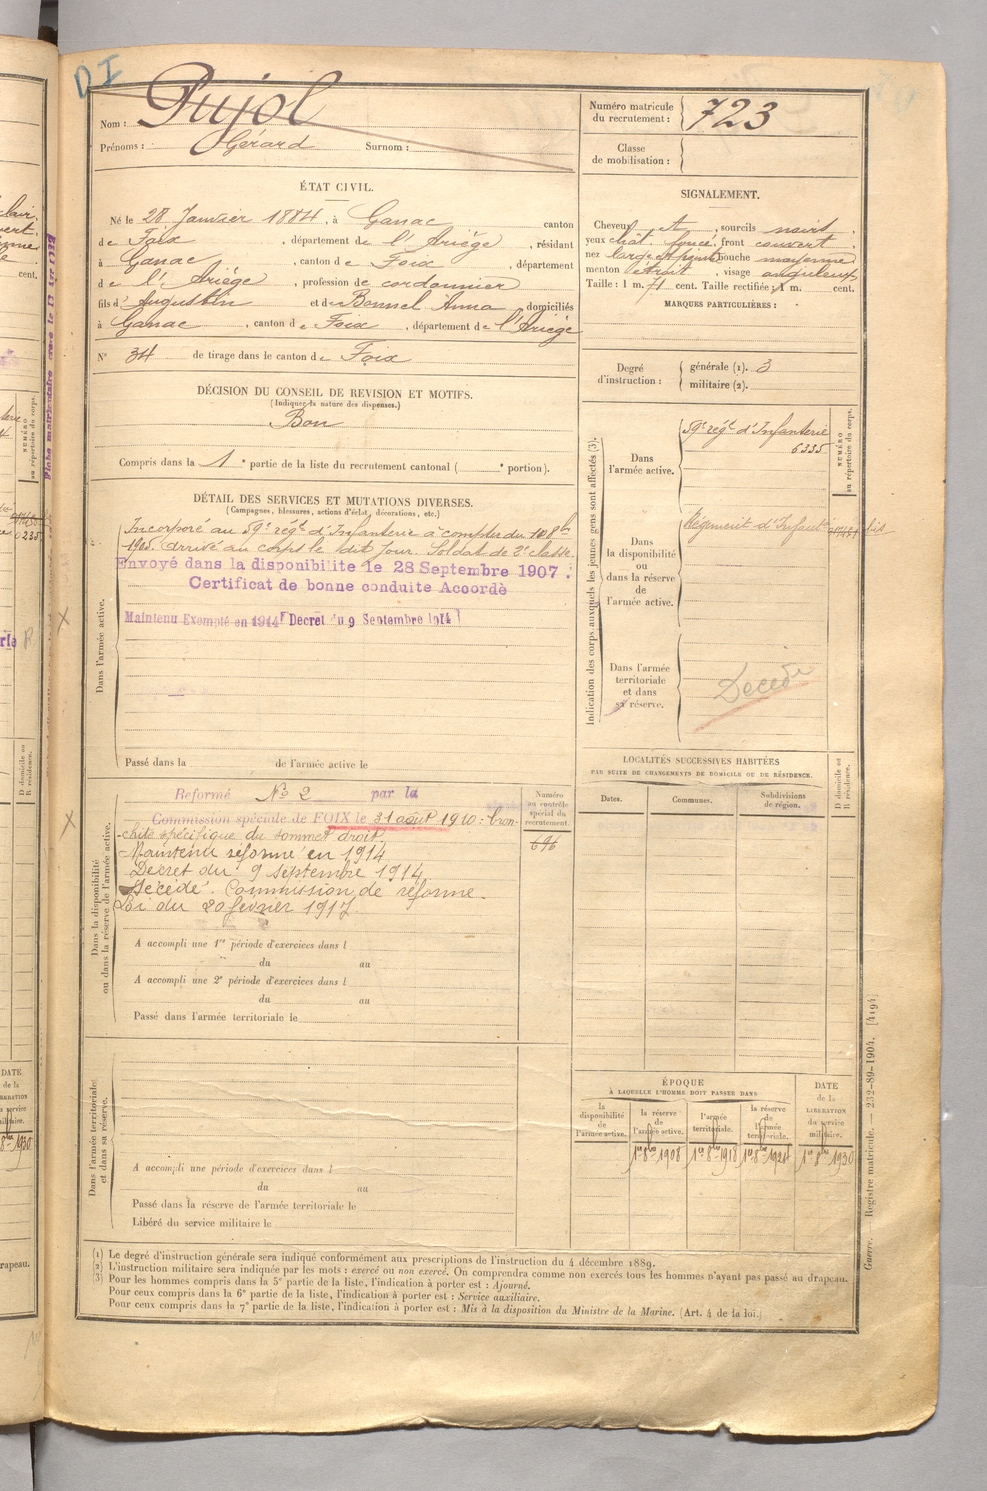 DI
Nom : Pujol
Prénoms : Gérard Surnom :
Numéro matricule
du recrutement : 723
Classe
de mobilisation :
ÉTAT CIVIL.
Né le 28 Janvier 1884, à Ganac canton
de Foix, département de l'Ariège, résidant
à Ganac, canton de Foix, département
de l'Ariège, profession de cordonnier
fils d'Augustin et de Bonnel Anna domiciliés
à Ganac, canton de Foix, département de l'Ariège
N° 34 de tirage dans le canton de Foix
SIGNALEMENT.
Cheveux et, sourcils noirs
yeux chât. foncé, front couvert
nez large et bouche moyenne
menton étroit, visage anguleux
Taille : 1 m. 71 cent. Taille rectifiée : 1 m. cent.
MARQUES PARTICULIÈRES :
Degré
d'instruction :
générale (1). 3
militaire (2).
DÉCISION DU CONSEIL DE REVISION ET MOTIFS.
(Indiquer la nature des dispenses.)
Bon
Compris dans la 1e partie de la liste du recrutement cantonal ( e portion).
DÉTAIL DES SERVICES ET MUTATIONS DIVERSES.
(Campagnes, blessures, actions d'éclat, décorations, etc.)
Dans l'armée active.
Incorporé au 59e régt d'Infanterie à compter du 8bre
1905. arrivé au corps le dit jour. Soldat de 2e classe.
Envoyé dans la disponibilite le 28 Septembre 1907.
Certificat de bonne conduite Accordé
Maintenu Exempté en 1914 Decret du 9 Septembre 1914
Passé dans la de l'armée active le
Indication des corps auxquels les jeunes gens sont affectés (3).
NUMÉRO
au répertoire du corps.
Dans
l'armée active.
59e régt d'Infanterie
6335
Dans
la disponibilité
ou
dans la réserve
de
l'armée active.
Régiment d'Infant
bis
Dans l'armée
territoriale
et dans
sa réserve.
Décédé
Dans la disponibilité
ou dans la réserve de l'armée active.
Numéro
au contrôle
spécial du
recrutement.
696
Reformé No 2 par la
Commission spéciale de FOIX le 31 août 1910 : bron-
chite spécifique du sommet droit
Maintenu réformé en 1914
Décret du 9 septembre 1914
Décédé. Commission de réforme.
Loi du 20 février 1917.
A accompli une 1re période d'exercices dans l
du au
A accompli une 2e période d'exercices dans l
du au
Passé dans l'armée territoriale le
LOCALITÉS SUCCESSIVES HABITÉES
PAR SUITE DE CHANGEMENTS DE DOMICILE OU DE RÉSIDENCE.
Dates. Communes. Subdivisions
de région.
D domicile ou
R résidence.
Dans l'armée territoriale
et dans sa réserve.
A accompli une période d'exercices dans l
du au
Passé dans la réserve de l'armée territoriale le
Libéré du service militaire le
ÉPOQUE
À LAQUELLE L'HOMME DOIT PASSER DANS
la
disponibilité
de
l'armée active.
la réserve
de
l'armée active.
l'armée
territoriale.
la réserve
de
l'armée
territoriale.
DATE
de la
LIBÉRATION
du service
militaire.
1er 8bre 1908 1er 8bre 1918 1er 8bre 1924 1er 8bre 1930
(1) Le degré d'instruction générale sera indiqué conformément aux prescriptions de l'instruction du 4 décembre 1889.
(2) L'instruction militaire sera indiquée par les mots : exercé ou non exercé. On comprendra comme non exercés tous les hommes n'ayant pas passé au drapeau.
(3) Pour les hommes compris dans la 5e partie de la liste, l'indication à porter est : Ajourné.
Pour ceux compris dans la 6e partie de la liste, l'indication à porter est : Service auxiliaire.
Pour ceux compris dans la 7e partie de la liste, l'indication à porter est : Mis à la disposition du Ministre de la Marine. (Art. 4 de la loi.)
Guerre. — Registre matricule. — 232-89-1904. [4194]